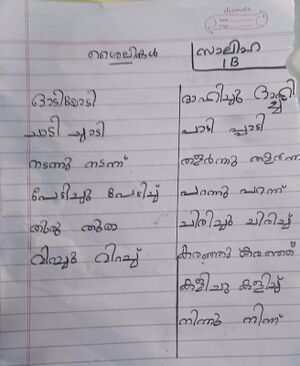 ശൈലികൾ
സാലിഹ
1B
ഓടിയോടി
ചാടി ച്ചാടി
നടന്നു നടന്ന്
പേടിച്ചു പേടിച്ച്
തുരു തുരാ
വിറച്ചു വിറച്ച്
ദാഹിച്ചു ദാഹിച്ച്
പാടി പ്പാടി
തളർന്നു തളർന്ന
പറന്നു പറന്ന്
ചിരിച്ചു ചിരിച്ച്
കരഞ്ഞു കരഞ്ഞ്
കളിച്ചു കളിച്ച്
നിന്നു നിന്ന്